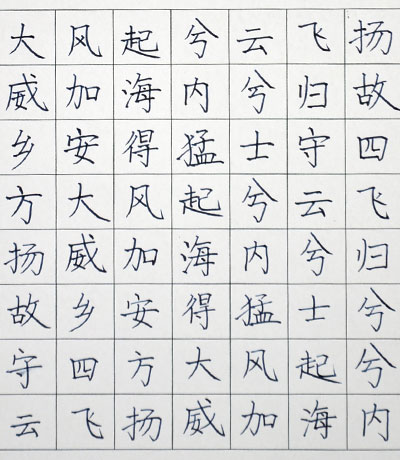 大风起兮云飞扬
威加海内兮归故
乡安得猛士守四
方大风起兮云飞
扬威加海内兮归
故乡安得猛士兮
守四方大风起兮
云飞扬威加海内